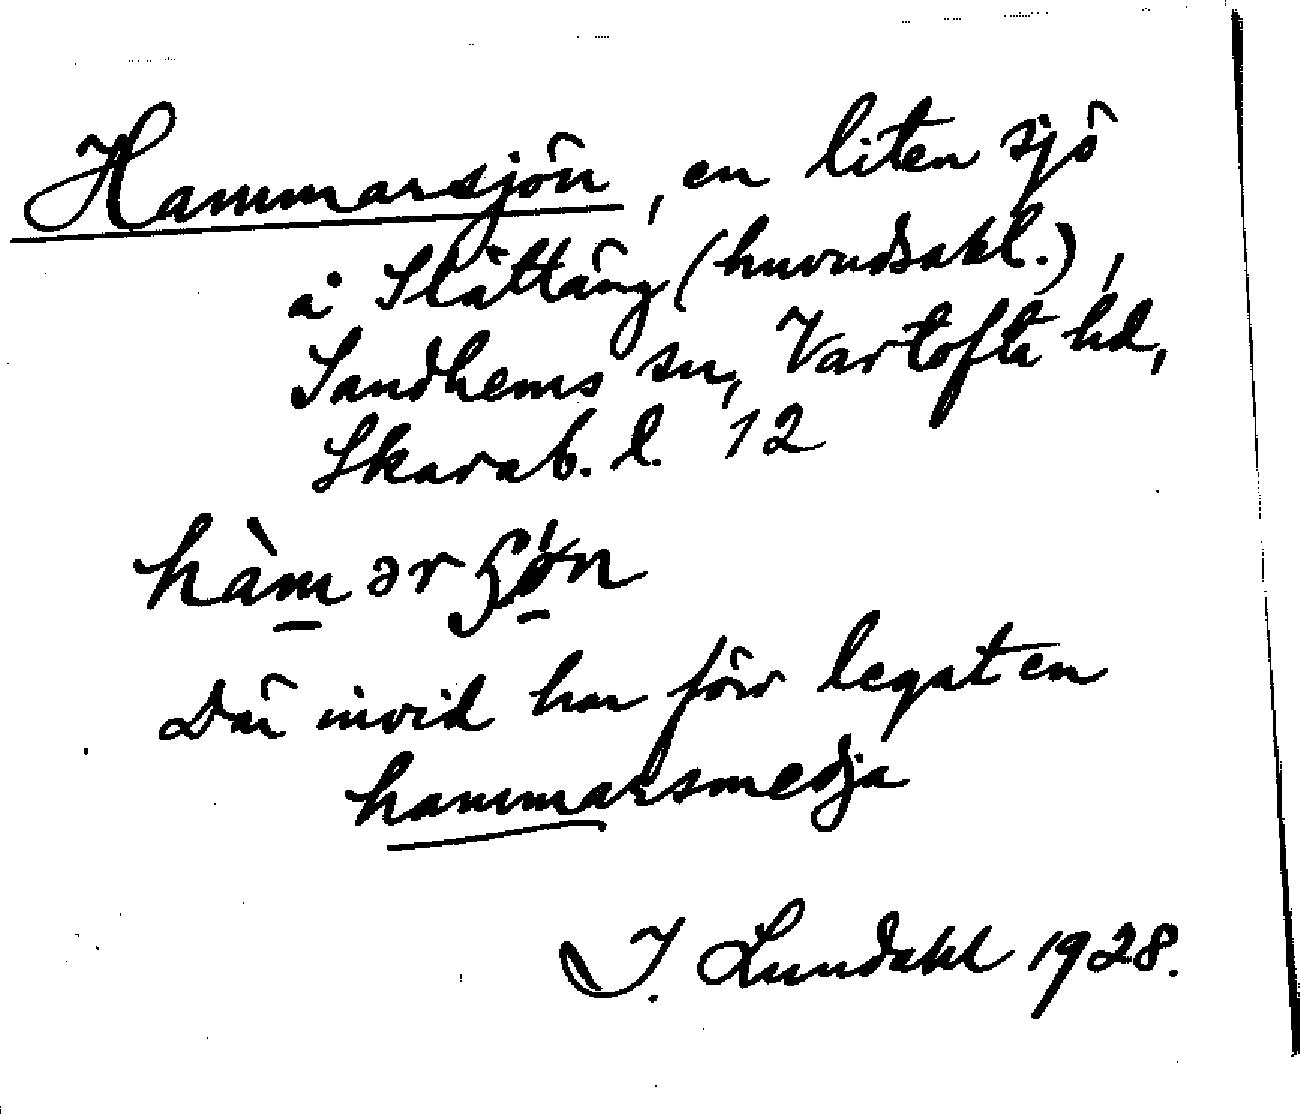 Hammarsjön, en liten sjö
å Slättäng (huvudsakl.),
Sandhems sn, Vartofta hd,
Skarab. l. 12
hàm ər
Där invid har förr legat en
hammarsmedja
I. Lundahl 1928.